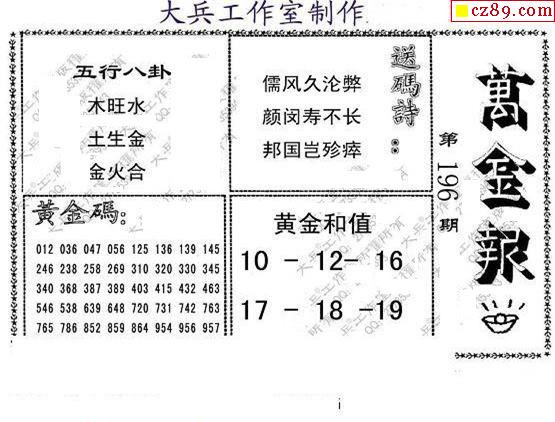 大兵工作室制作
cz89.com
五行八卦
木旺水
土生金
金火合
送碼詩：
儒风久沦弊
颜闵寿不长
邦国岂殄瘁
萬金報
第196期
黃金碼:
012 036 047 056 125 136 139 145
246 238 258 269 310 320 330 345
340 368 387 389 403 415 432 463
546 538 639 648 720 731 742 763
765 786 852 859 864 954 956 957
黄金和值
10 - 12- 16
17 - 18 -19
i